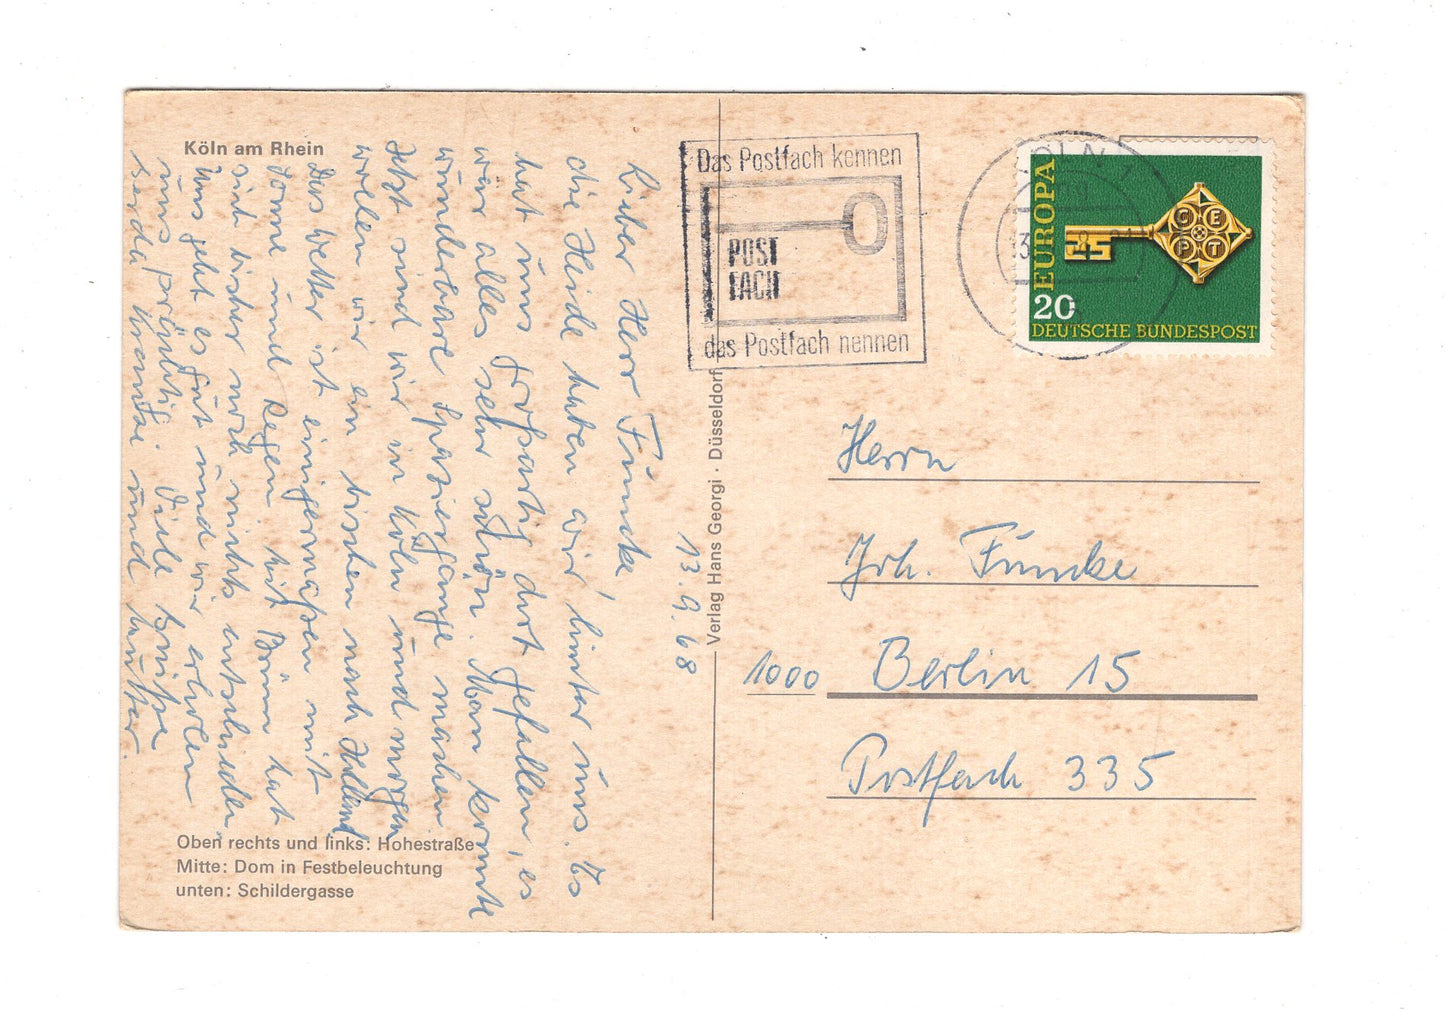 Köln am Rhein
13.9.68
Lieber Herr Funcke,
die Heide haben wir hinter uns. Es
hat uns großartig dort gefallen, es
war alles sehr schön. Man konnte
wunderbare Spaziergänge machen
Jetzt sind wir in Köln und morgen
wollen wir ein bisschen nach Holland
Das Wetter ist einigermaßen mit
Sonne und Regen hat
sich bisher noch nichts entschieden
Uns geht es gut und wir erholen
uns prächtig. Viele Grüße
und
Oben rechts und links: Hohestraße
Mitte: Dom in Festbeleuchtung
unten: Schildergasse
Verlag Hans Georgi · Düsseldorf
Das Postfach kennen
POST
FACH
das Postfach nennen
KÖLN 1
EUROPA
CEPT
20
DEUTSCHE BUNDESPOST
Herrn
Joh. Funcke
1000 Berlin 15
Postfach 335